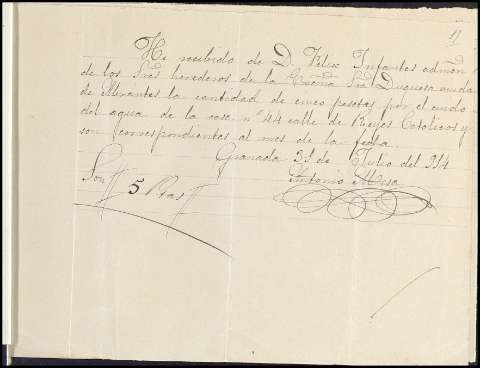 11
He recibido de D. Felix Infantes admon
de los Sres herederos de la Excma Sra Duquesa viuda
de Abrantes la cantidad de cinco pesetas por el cuido
del agua de la casa nº 44 calle de Reyes Catolicos y
son correspondientes al mes de la fecha.
Granada 31 de Julio del 914
Antonio Mesa
Son 5 Ptas